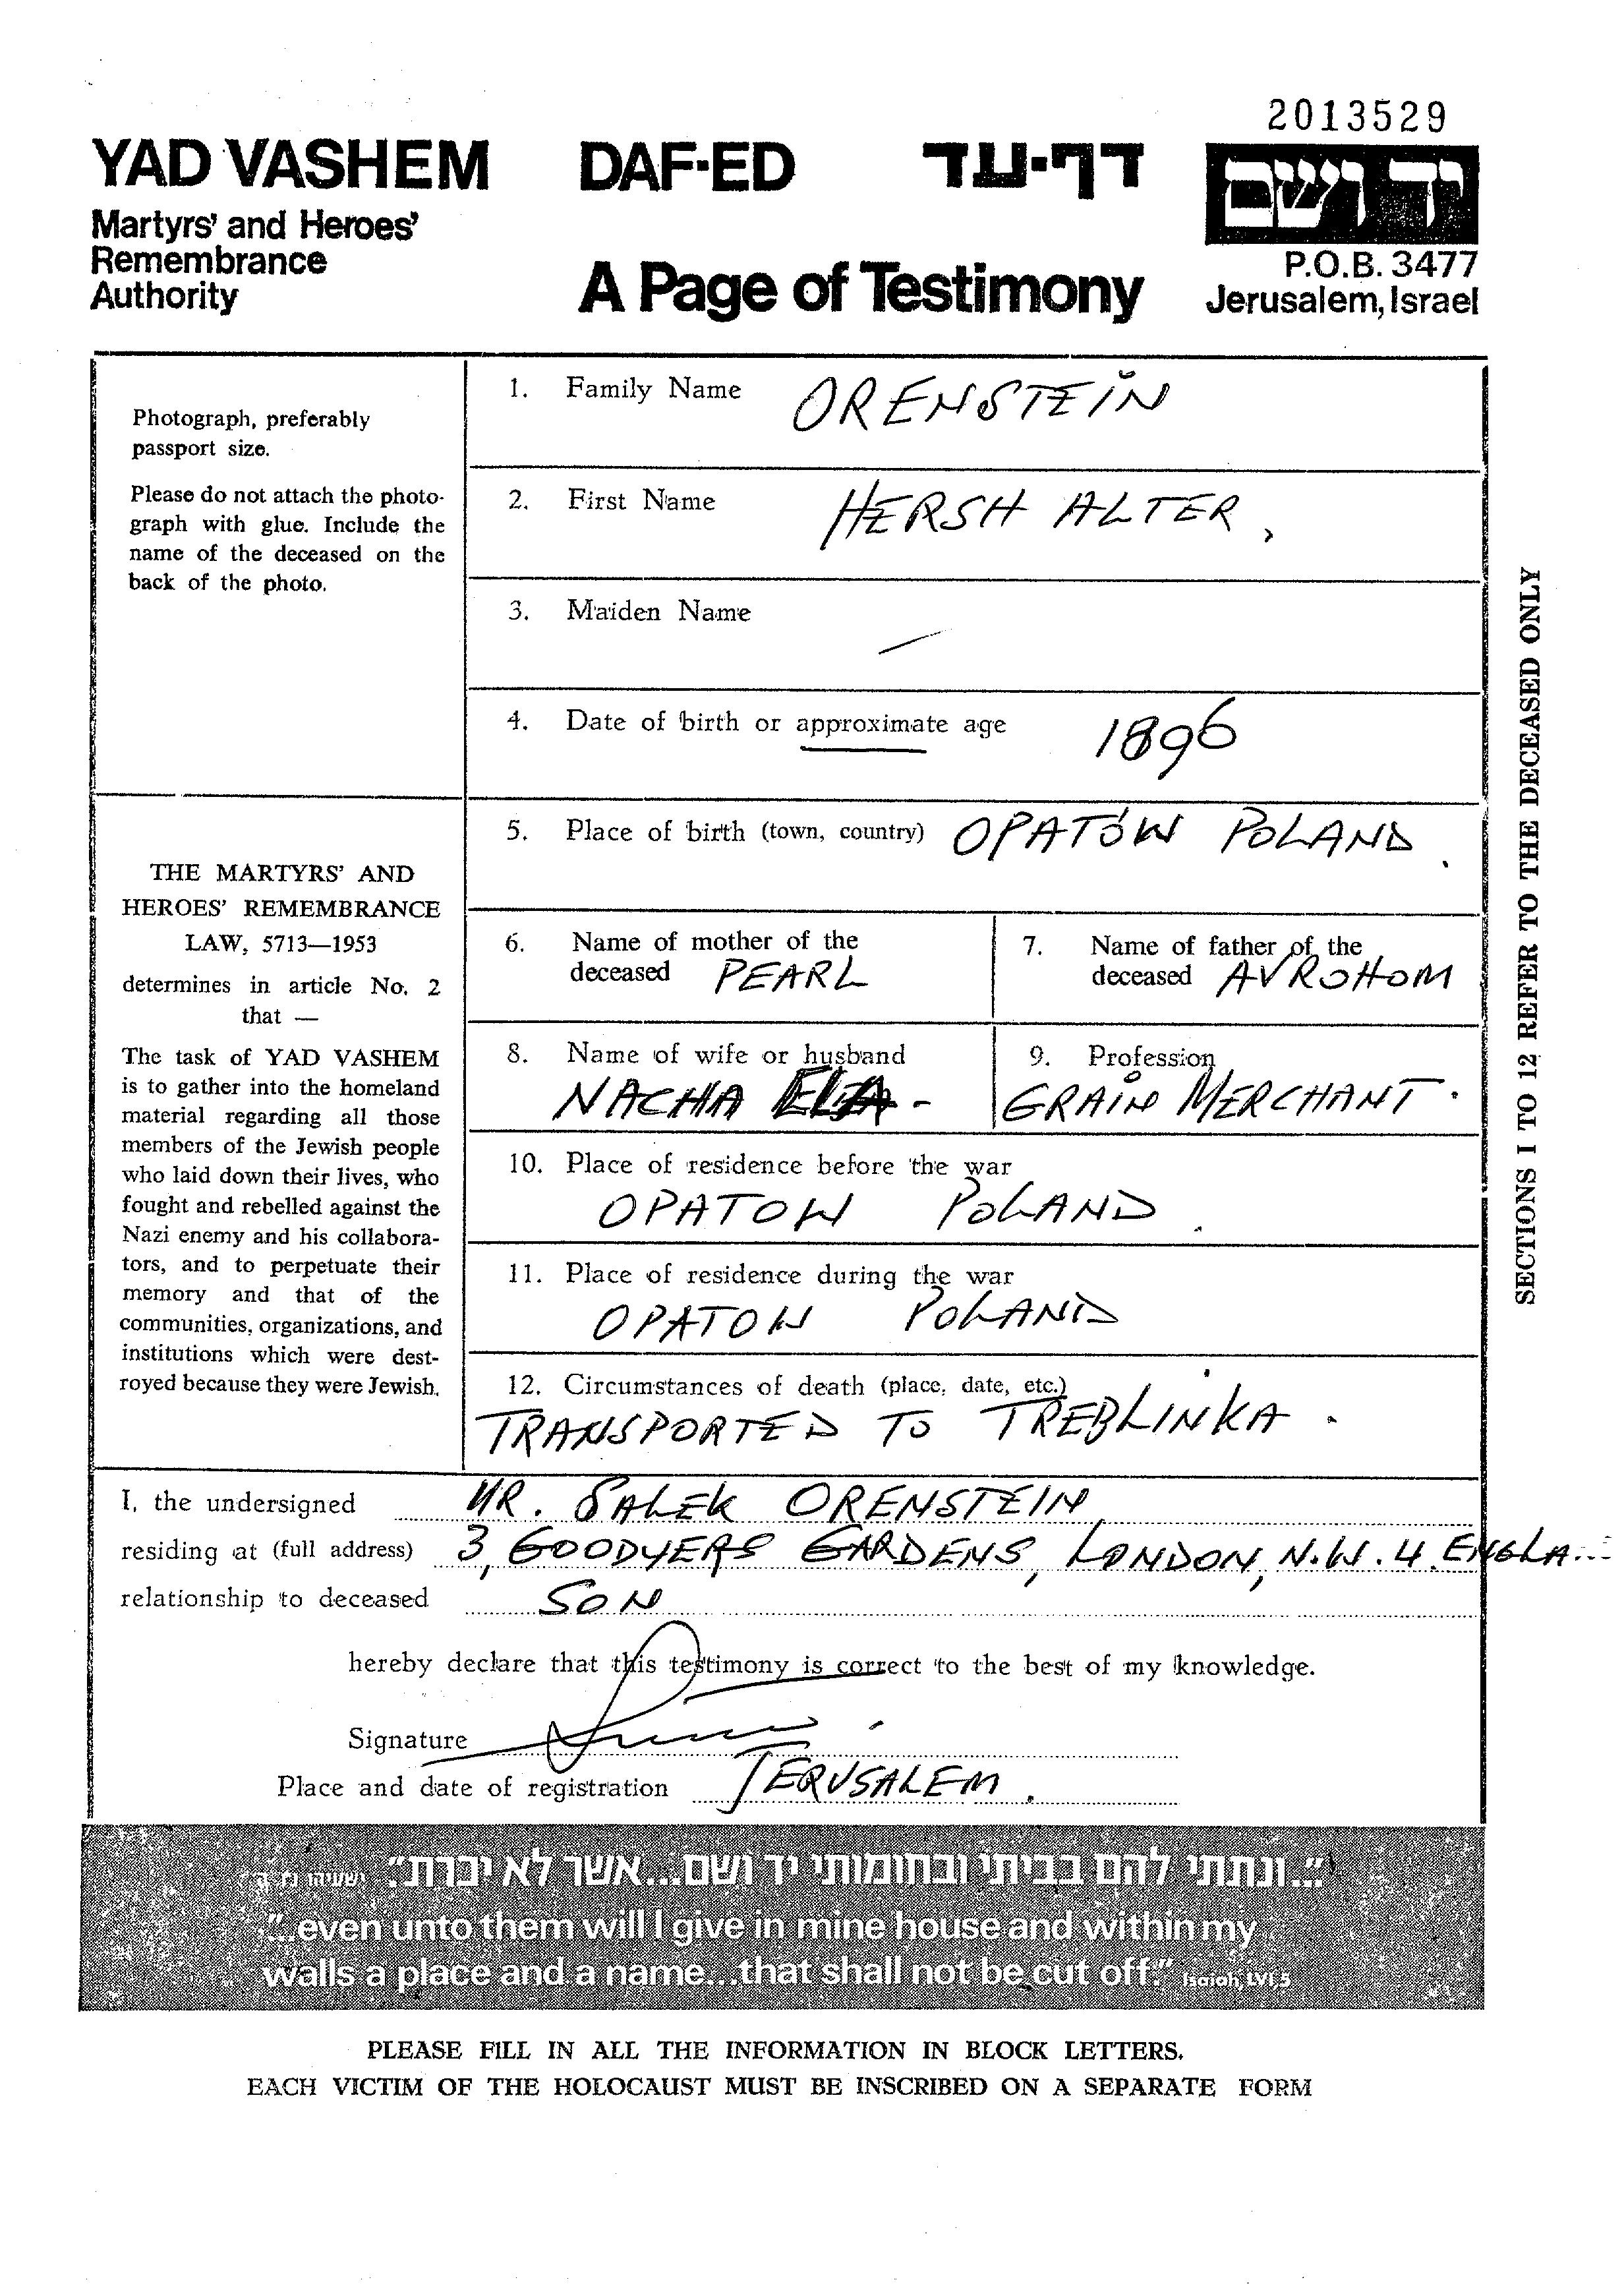 2013529
YAD VASHEM
DAF-ED
דף-עד
יד ושם
Martyrs' and Heroes'
Remembrance
Authority
A Page of Testimony
P.O.B. 3477
Jerusalem, Israel
Photograph, preferably
passport size.
Please do not attach the photo-
graph with glue. Include the
name of the deceased on the
back of the photo.
THE MARTYRS' AND
HEROES' REMEMBRANCE
LAW, 5713—1953
determines in article No. 2
that —
The task of YAD VASHEM
is to gather into the homeland
material regarding all those
members of the Jewish people
who laid down their lives, who
fought and rebelled against the
Nazi enemy and his collabora-
tors, and to perpetuate their
memory and that of the
communities, organizations, and
institutions which were dest-
royed because they were Jewish.
1. Family Name ORENSTEIN
2. First Name HERSH ALTER,
3. Maiden Name —
4. Date of birth or approximate age 1896
5. Place of birth (town, country) OPATÓW POLAND.
6. Name of mother of the
deceased PEARL
7. Name of father of the
deceased AVROHOM
8. Name of wife or husband
NACHA -
9. Profession
GRAIN MERCHANT.
10. Place of residence before the war
OPATOW POLAND.
11. Place of residence during the war
OPATOW POLAND
12. Circumstances of death (place, date, etc.)
TRANSPORTED TO TREBLINKA.
SECTIONS 1 TO 12 REFER TO THE DECEASED ONLY
I, the undersigned MR. SALEK ORENSTEIN
residing at (full address) 3, GOODYERS GARDENS, LONDON, N.W.4. ENGLA
relationship to deceased SON
hereby declare that this testimony is correct to the best of my knowledge.
Signature
Place and date of registration JERUSALEM.
"...ונתתי להם בביתי ובחומותי יד ושם...אשר לא יכרת." ישעיהו נו, ה
"...even unto them will I give in mine house and within my
walls a place and a name...that shall not be cut off." Isaiah, LVI 5
PLEASE FILL IN ALL THE INFORMATION IN BLOCK LETTERS.
EACH VICTIM OF THE HOLOCAUST MUST BE INSCRIBED ON A SEPARATE FORM